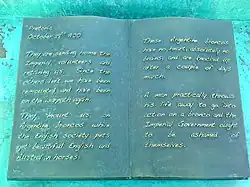 Pretoria
October 29th 1900
They are sending home the
Imperial volunteers and
retaining us. Since the
others left we have been
remounted and have been
on the warpath again.
They mount us on
Argentine broncos while
the English Society pets
get beautiful English and
Australian horses.
These Argentine broncos
have no hearts, absolutely no
brains, and are tired out
after a couple of days
march.
A man practically throws
his life away to go into
action on a bronco and the
Imperial Government ought
to be ashamed of
themselves.